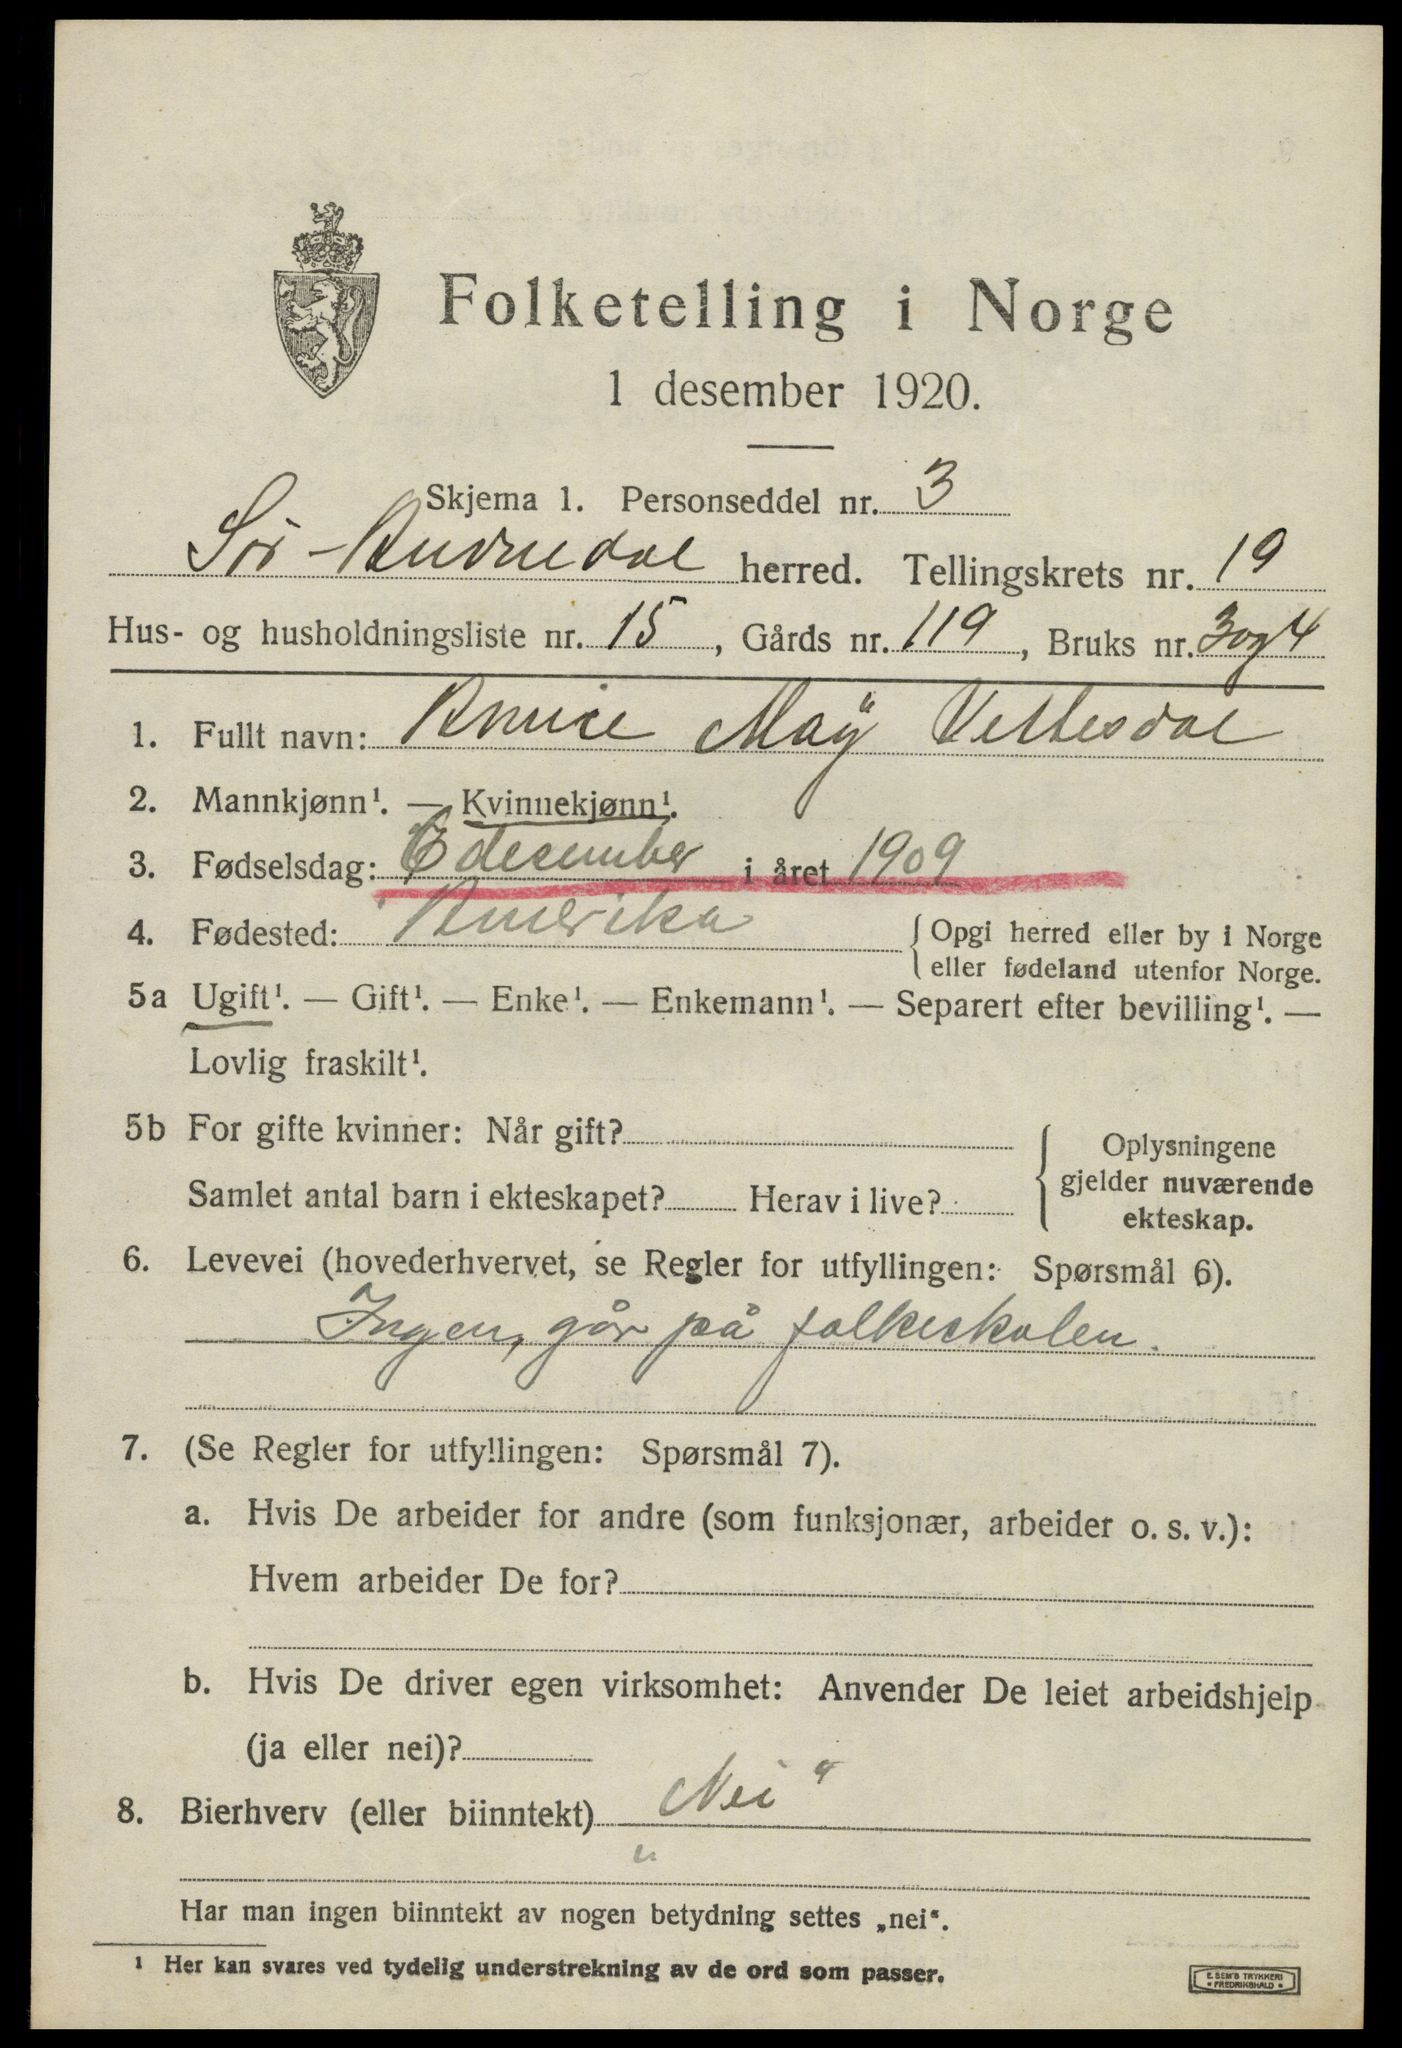 Folketelling i Norge
1 desember 1920.
Skjema 1. Personseddel nr. 3
Sør-Audnedal herred. Tellingskrets nr. 19
Hus- og husholdningsliste nr. 15, Gårds nr. 119, Bruks nr. 3 og 4
1. Fullt navn: May Vettesdal
2. Mannkjønn¹. — Kvinnekjønn¹.
3. Fødselsdag: 6 desember i året 1909
4. Fødested: Amerika { Opgi herred eller by i Norge
eller fødeland utenfor Norge.
5a Ugift¹. — Gift¹. — Enke¹. — Enkemann¹. — Separert efter bevilling¹. —
Lovlig fraskilt¹.
5b For gifte kvinner: Når gift?
Samlet antal barn i ekteskapet? Herav i live?
{ Oplysningene
gjelder nuværende
ekteskap.
6. Levevei (hovederhvervet, se Regler for utfyllingen: Spørsmål 6).
Ingen, går på folkeskolen.
7. (Se Regler for utfyllingen: Spørsmål 7).
a. Hvis De arbeider for andre (som funksjonær, arbeider o. s. v.):
Hvem arbeider De for?
b. Hvis De driver egen virksomhet: Anvender De leiet arbeidshjelp
(ja eller nei)?
8. Bierhverv (eller biinntekt) „Nei“
Har man ingen biinntekt av nogen betydning settes „nei“.
¹ Her kan svares ved tydelig understrekning av de ord som passer.
E. SEM'S TRYKKERI
• FREDRIKSHALD •